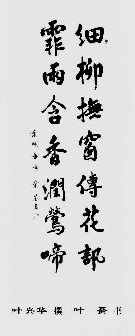 细柳撫窗傳花訊
霏雨含香潤鶯啼
叶兴华 撰 叶 书